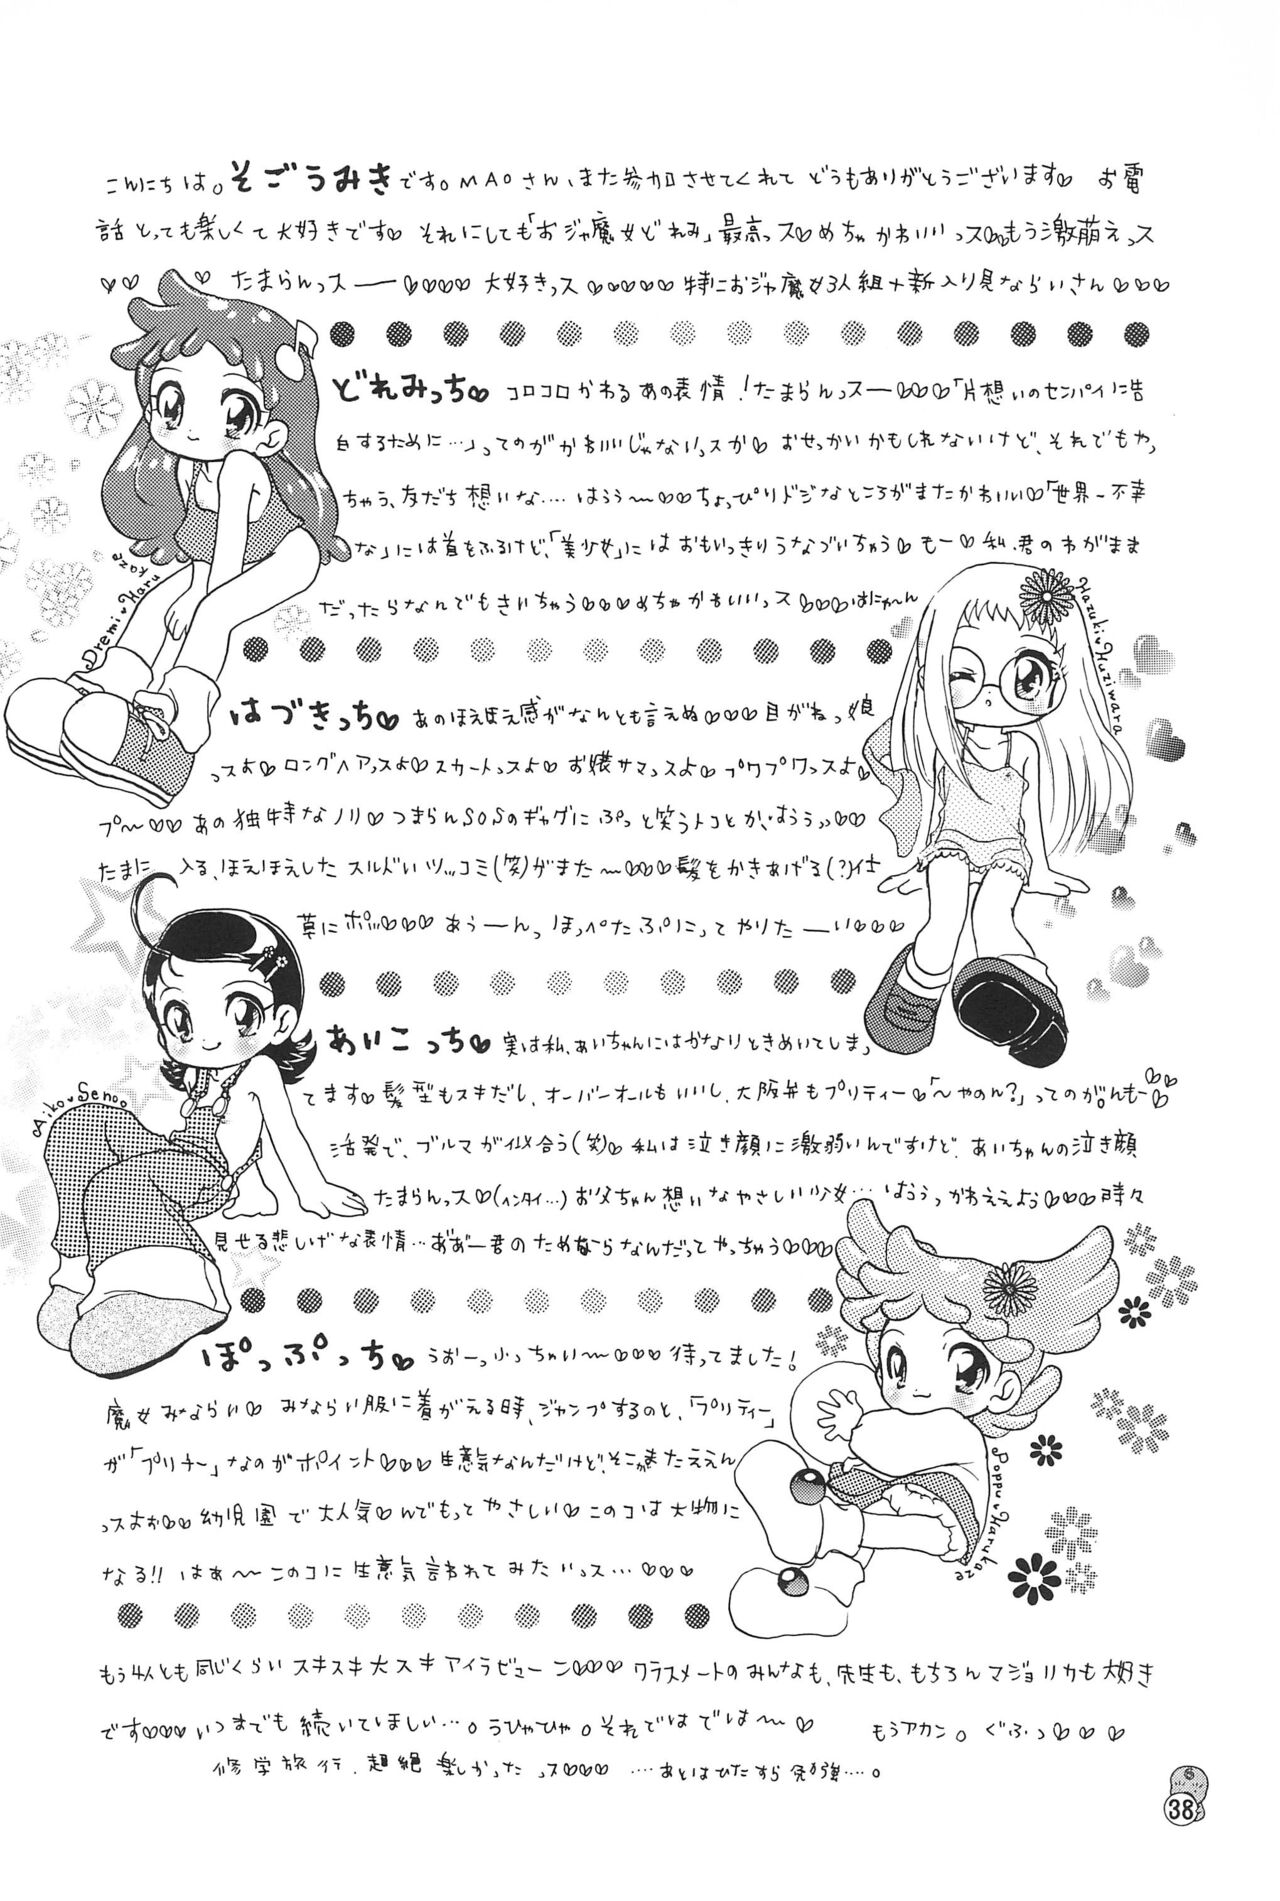 こんにちは。そごうみきです。MAOさん、また参加させてくれて どうもありがとうございます♡ お電
話とっても楽しくて大好きです♡ それにしても「おジャ魔女どれみ」最高っス♡めちゃかわいいっス♡もう激萌えっス
♡♡ ♡ たまらんっスー♡♡♡♡ 大好きっス♡♡♡♡♡特におジャ魔女3人組+新入り見ならいさん♡♡♡
どれみっち♡ コロコロかわるあの表情!たまらんっスー♡♡♡「片想いのセンパイに告
白するために…」ってのがかわいいじゃないっスか♡ おせっかいかもしれないけど、それでもやっ
ちゃう、友だち想いな…. はうう〜♡♡ちょっぴりドジなところがまたかわいい♡「世界一不幸
な」には首をふるけど、「美少女」にはおもいっきりうなづいちゃう♡もー♡私、君のわがまま
だったらなんでもきいちゃう♡♡♡めちゃかわいいっス♡♡♡はにゃ〜ん
Dremi♡Harukaze
Hazuki♡Huziwara
はづきっち♡ あのほえほえ感がなんとも言えぬ♡♡♡目がねっ娘
っスよ♡ロングヘアっスよ♡スカートっスよ♡お嬢サマっスよ♡プワプワっスよ♡
プ〜♡♡ あの独特なノリ♡つまらんSOSのギャグにぷっと笑うトコとか、はうぅっ♡♡
たまに 入る、ほえほえしたスルドいツッコミ(笑)がまた〜♡♡♡髪をかきあげる(?)仕
草にポッ♡♡♡ あぅーんっ ほっぺたぷにってやりたーい♡♡♡
あいこっち♡ 実は私、あいちゃんにはかなりときめいてしまっ
てます♡髪型もスキだし、オーバーオールもいいし、大阪弁もプリティー♡「〜やのん?」ってのがんもー♡♡♡
活発で、ブルマが似合う(笑)♡私は泣き顔に激弱いんですけど、あいちゃんの泣き顔
たまらんっス♡(ヘンタイ…)お父ちゃん想いなやさしい少女… はううっかわええよぅ♡♡♡時々
見せる悲しげな表情…ああー君のためならなんだってやっちゃう♡♡♡
Aiko♡Senoo
ぽっぷっち♡ うおーっ小っちゃい〜♡♡♡待ってました!
魔女みならい♡ みならい服に着がえる時、ジャンプするのと、「プリティー」
が「プリチー」なのがポイント♡♡♡生意気なんだけど、そこがまたええん
っスよぉ♡♡幼児園で大人気♡んでもってやさしい♡このコは大物に
なる!! はぁ〜このコに生意気言われてみたいっス…♡♡♡
Poppu♡Harukaze
もう4人とも同じくらいスキスキ大スキアイラビューン♡♡♡ クラスメートのみんなも、先生も、もちろんマジョリカも大好き
です♡♡♡いつまでも続いてほしい…。うひゃひゃ。それではでは〜♡ もうアカン。ぐふっ♡♡♡
修学旅行、超絶楽しかったっス♡♡♡ ….あとはひたすら勉強….。
38